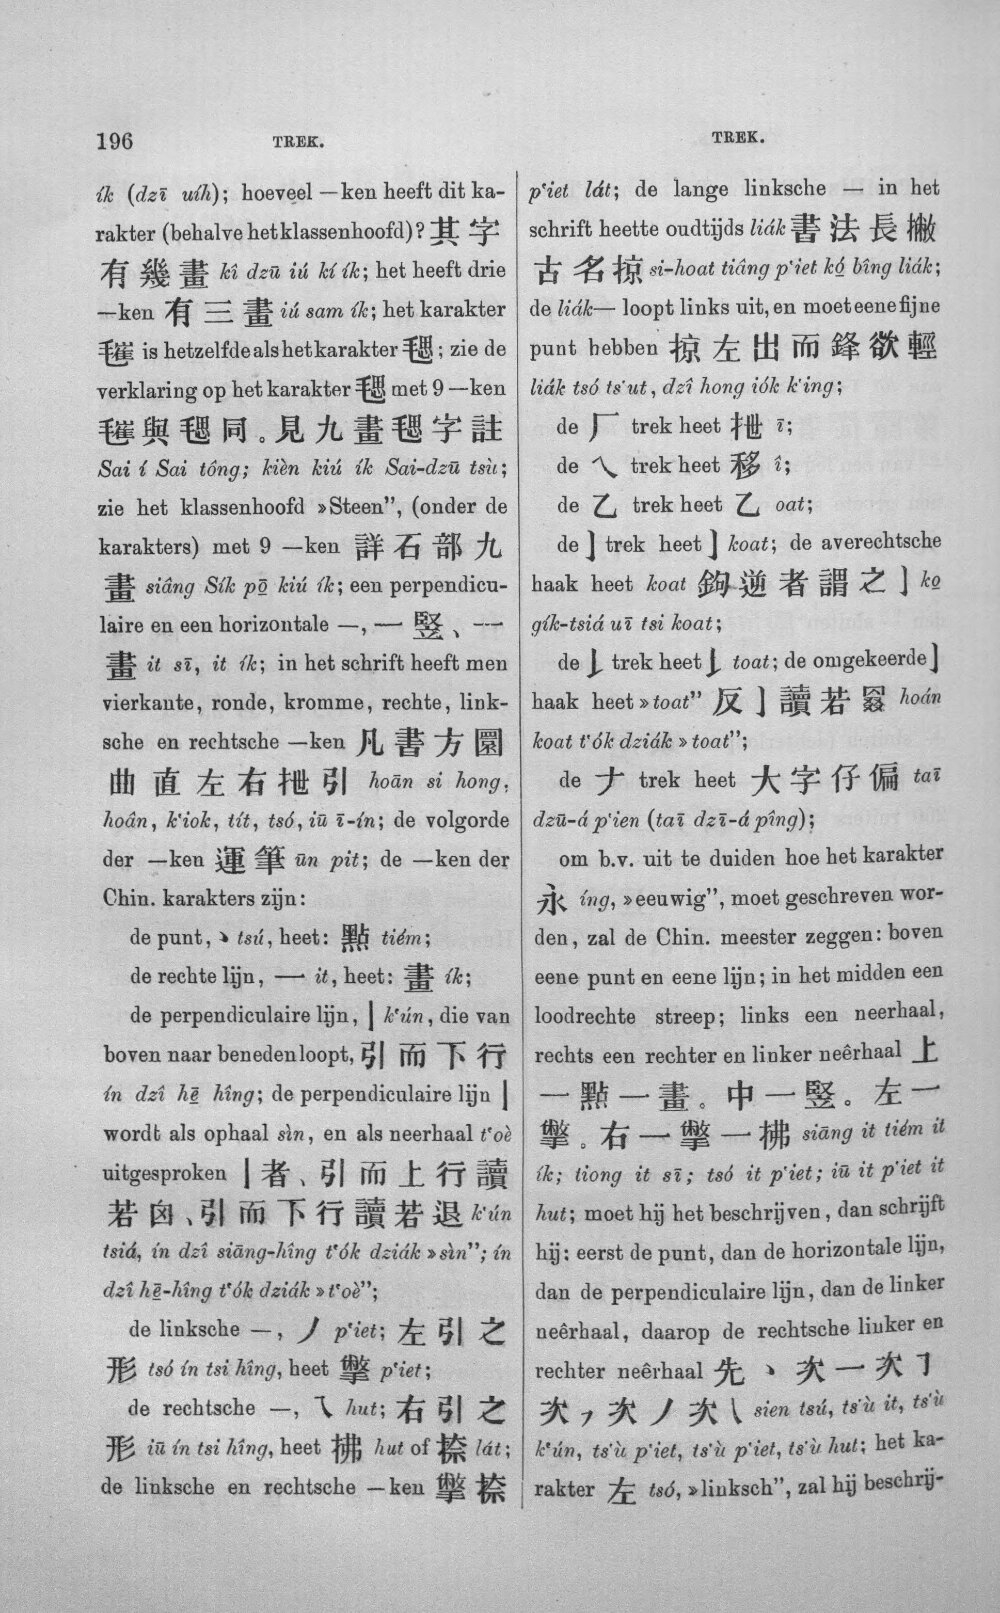 196 TREK. TREK.
ík (dzī uíh); hoeveel —ken heeft dit ka-
rakter (behalve het klassenhoofd)? 其字
有幾畫 kî dzū iú kí ík; het heeft drie
—ken 有三畫 iú sam ík; het karakter
毸 is hetzelfde als het karakter 毸; zie de
verklaring op het karakter 毸 met 9 —ken
與毸同。見九畫毸字註
Sai í Sai tông; kièn kiú ík Sai-dzū tsù;
zie het klassenhoofd »Steen”, (onder de
karakters) met 9 —ken 詳石部九
畫 siâng Sík pō̤ kiú ík; een perpendicu-
laire en een horizontale —, 一竪、一
畫 it sī, it ík; in het schrift heeft men
vierkante, ronde, kromme, rechte, link-
sche en rechtsche —ken 凡書方圜
曲直左右抴引 hoān si hong,
hoân, k‘iok, tít, tsó, iū ī-ín; de volgorde
der —ken 運筆 ūn pit; de —ken der
Chin. karakters zijn:
de punt, 丶 tsú, heet: 點 tiém;
de rechte lijn, 一 it, heet: 畫 ík;
de perpendiculaire lijn, 丨 k‘ún, die van
boven naar beneden loopt, 引而下行
ín dzî hē̤ hîng; de perpendiculaire lijn 丨
wordt als ophaal sìn, en als neerhaal t‘oè
uitgesproken 丨者、引而上行讀
若囟、引而下行讀若退 k‘ún
tsiá, ín dzî siāng-hîng t‘ók dziák »sìn”; ín
dzî hē̤-hîng t‘ók dziák »t‘oè”;
de linksche —, 丿 p‘iet; 左引之
形 tsó ín tsi hîng, heet 撆 p‘iet;
de rechtsche —, ㇏ hut; 右引之
形 iū ín tsi hîng, heet 拂 hut of 捺 lát;
de linksche en rechtsche —ken 撆捺
p‘iet lát; de lange linksche — in het
schrift heette oudtijds liák 書法長撇
古名掠 si-hoat tiâng p‘iet kó̤ bîng liák;
de liák— loopt links uit, en moet eene fijne
punt hebben 掠左出而鋒欲輕
liák tsó ts‘ut, dzî hong iók k‘ing;
de 厂 trek heet 抴 ī;
de ㇏ trek heet 移 î;
de 乙 trek heet 乙 oat;
de 亅 trek heet 亅 koat; de averechtsche
haak heet koat 鉤逆者謂之亅 ko̤
gík-tsiá uī tsi koat;
de 𠄌 trek heet 𠄌 toat; de omgekeerde 亅
haak heet »toat” 反亅讀若罬 hoán
koat t‘ók dziák »toat”;
de 𠂇 trek heet 大字仔偏 taī
dzū-á p‘ien (taī dzī-á pîng);
om b.v. uit te duiden hoe het karakter
永 íng, »eeuwig”, moet geschreven wor-
den, zal de Chin. meester zeggen: boven
eene punt en eene lijn; in het midden een
loodrechte streep; links een neerhaal,
rechts een rechter en linker neêrhaal 上
一點一畫。中一竪。左一
撆。右一撆一拂 siāng it tiém it
ík; tiong it sī; tsó it p‘iet; iū it p‘iet it
hut; moet hij het beschrijven, dan schrijft
hij: eerst de punt, dan de horizontale lijn,
dan de perpendiculaire lijn, dan de linker
neêrhaal, daarop de rechtsche linker en
rechter neêrhaal 先丶次一次㇆
次㇇次丿次㇏ sien tsú, ts‘ù it, ts‘ù
k‘ún, ts‘ù p‘iet, ts‘ù p‘iet, ts‘ù hut; het ka-
rakter 左 tsó, »linksch”, zal hij beschrij-